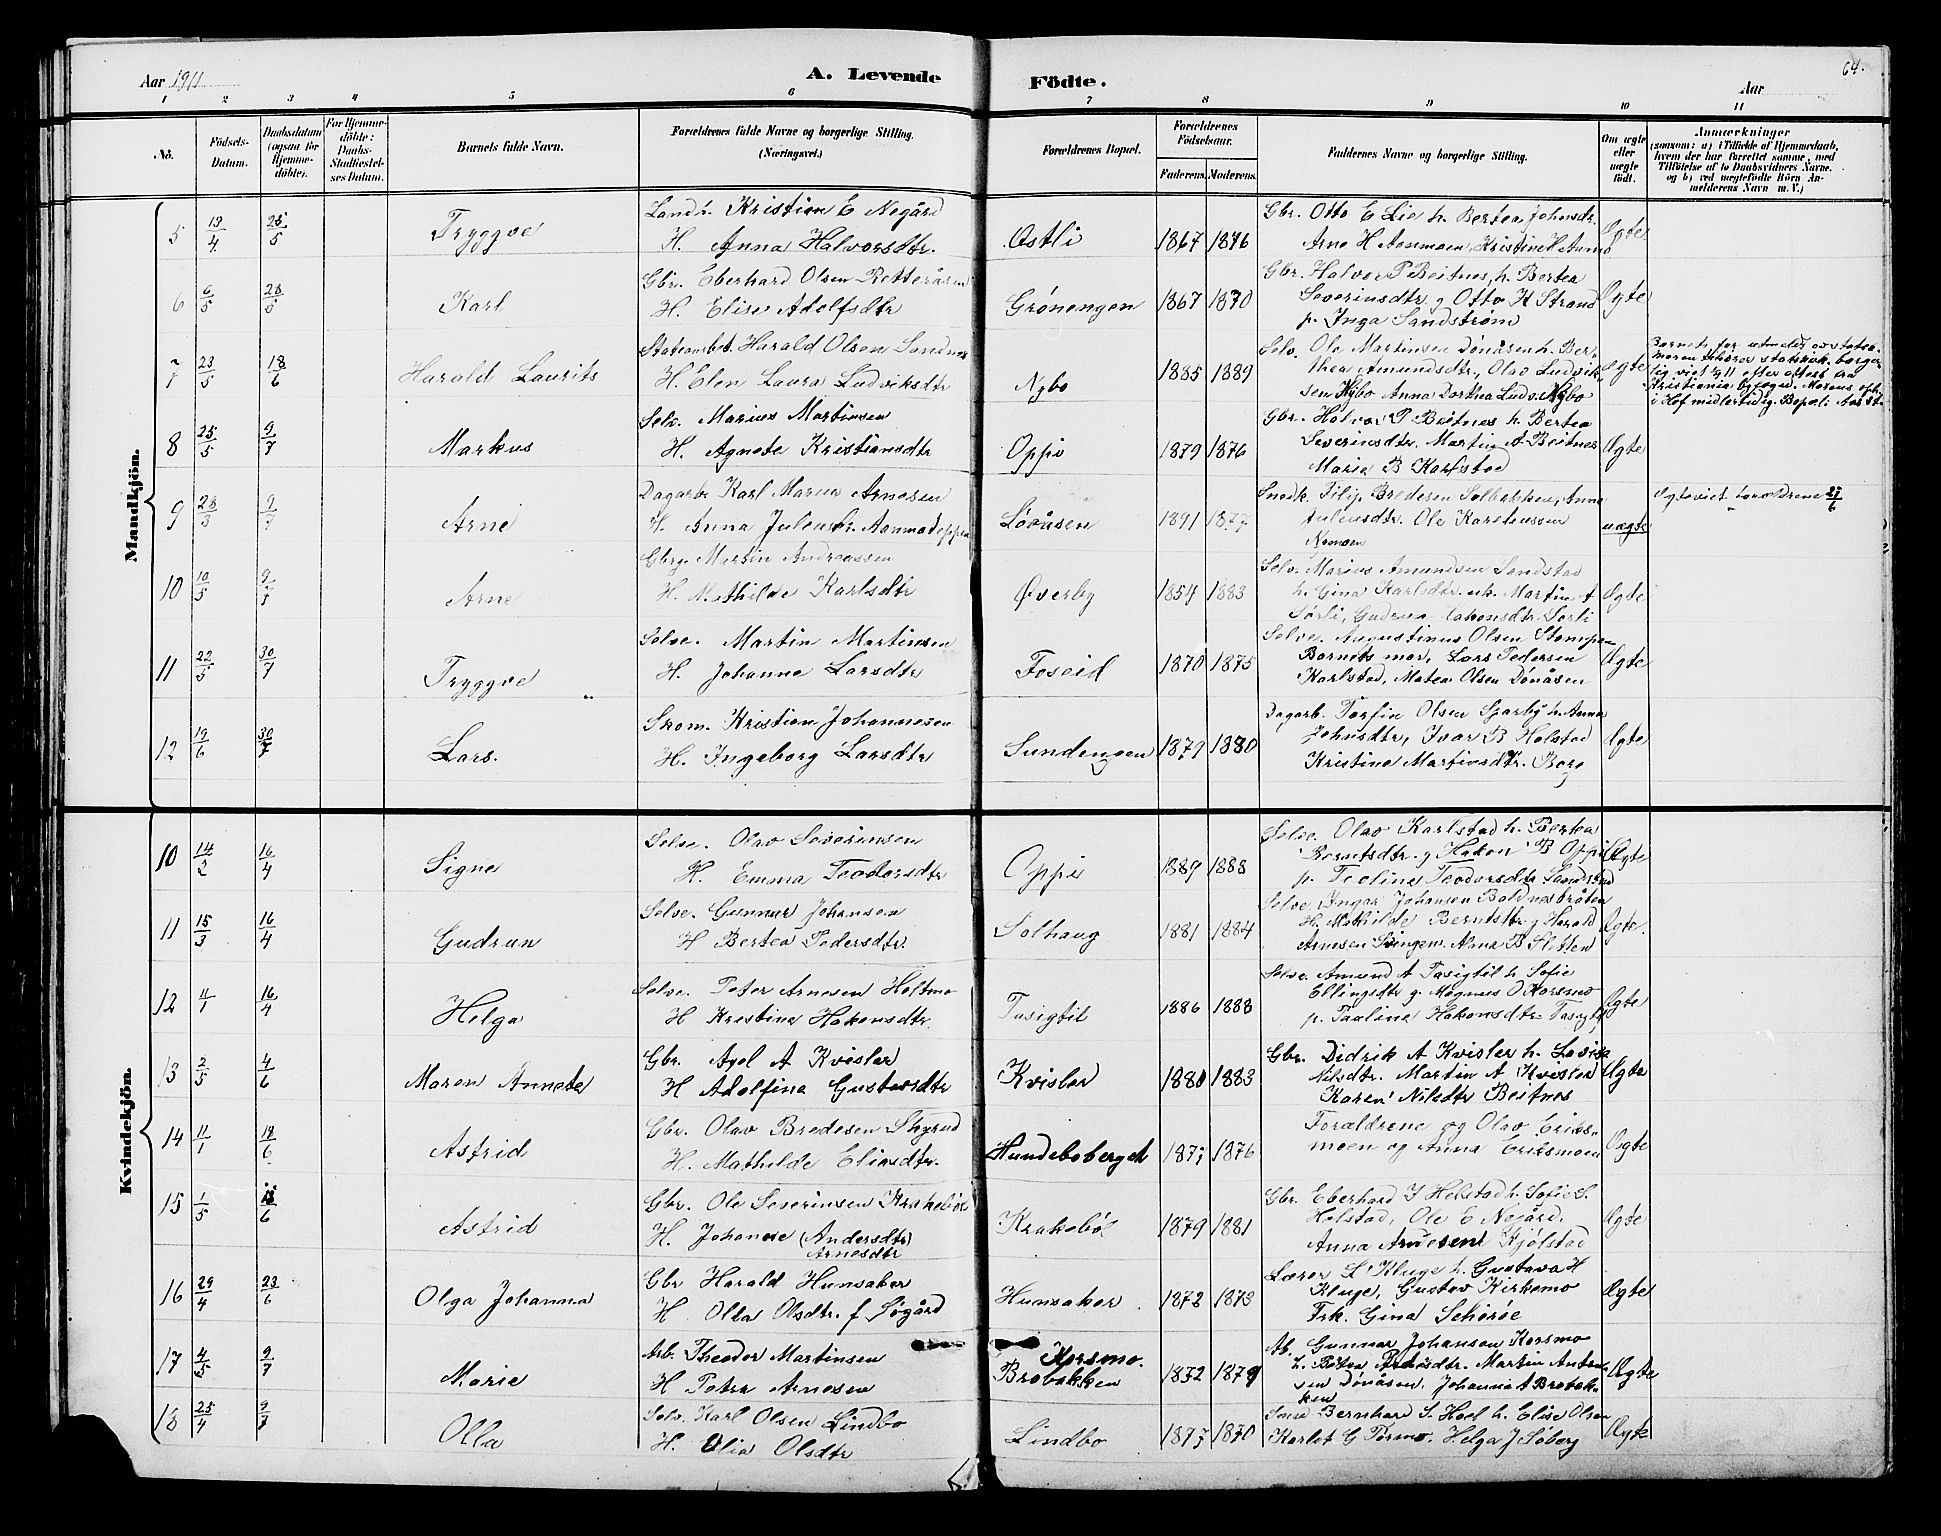 64.
Aar 1911
A. Levende Födte.
Aar
1 2 3 4 5 6 7 8 9 10 11
No.
Födsels-Datum.
Daabsdatum (ogsaa for Hjemme-döbte).
For Hjemme-döbte: Daabs-Stadfæstel-ses Datum.
Barnets fulde Navn.
Forældrenes fulde Navne og borgerlige Stilling.
(Næringsvei.)
Forældrenes Bopæl.
Forældrenes Födselsaar.
Faderens. Moderens.
Faddernes Navne og borgerlige Stilling.
Om ægte eller uægte födt.
Anmærkninger
(saasom: a) i Tilfælde af Hjemmedaab,
hvem der har forrettet samme, med
Tilföielse af to Daabsvidners Navne.
og b) ved uægtefödte Börn An-
melderens Navn m. V.)
Mandkjön.
5 13/4 25/5 Tryggve
Landh. Kristian E Negård
H. Anna Halvorsdtr.
Østli 1867 1876
Gbr. Otto E Lie h. Bertea Johansdtr.
Arne H Aanmoen, Kristine H Aanmo
Ægte
6 6/5 28/5 Karl
Gbr. Eberhard Olsen Retteråsen
H. Elise Adolfsdtr
Grønengen 1867 1870
Gbr. Halvor P Beitnes, h. Bertea
Severinsdtr g Otto K Strand
p. Inga Sandstrøm
Ægte
7 23/5 18/6 Harald Laurits
Harald Olsen Sandnes
H. Elen Laura Ludviksdtr
Nybo 1885 1889
Selv. Ole Martinsen Dónåsen h. Ber-
thea Amundsdtr., Olav Ludvik-
sen Nybo Anna Dortea Ludv. Nybo
Ægte
Barnets far utmeldt av statsk.
Moren tilhører statskirk. borger-
lig viet 11 efter attest fra
Kristiania byfoged. Morens oph.
i Hof midlertidig. Bopæl:
8 25/5 9/7 Markus
Selv. Marius Martinsen
H. Agnete Kristiansdtr
Oppi 1879 1876
Gbr. Halvor P Beitnes h. Bertea
Severinsdtr, Martin A Beitnes
Marie B Karlstad
Ægte
9 28/3 9/7 Arne
Dagarb. Karl Marius Arnesen
H. Anna Juliusdtr. Aanmodeppen
Lövåsen 1891 1877
Snedk. Filip Bredesen Solbakken, Anna
Juliusdtr. Ole Kareliussen
Nomoen
uægte
Ægteviet foreldrene 25/6
10 10/5 9/7 Arne
Gbrg. Martin Andreassen
H. Mathilde Karlsdtr
Øverby 1854 1883
Selv. Marius Amundsen Sandstad
h. Gina Karlsdtr. uk. Martin A
Sørli, Gudrun Hakonsdtr Sorli
Ægte
11 22/5 30/7 Tryggve
Selve. Martin Martinsen
H. Johanne Larsdtr
Foseid 1870 1875
Selve. Augustinus Olsen Stompen
Barnets mor, Lars Pedersen
Karlstad, Matea Olsen Dónåsen
Ægte
12 19/6 30/7 Lars.
Skom. Kristian Johannesen
H. Ingeborg Larsdtr
Sundmoen 1879 1880
Dagarb. Torfin Olsen Sparby h. Anna
Johnsdtr, Ivar B Holstad
Kristine Martinsdtr. Berg
Ægte
Kvindekjön.
10 14/2 16/4 Signe
Selve. Olav Severinsen
H. Emma Teodorsdtr
Oppi 1889 1888
Selve. Olav Karlstad h. Bertea
Berntsdtr. g Hakon B Oppi
p. Teoline Teodorsdtr Sandstad
Ægte
11 15/3 16/4 Gudrun
Selve. Gunnar Johansen
H Bertea Pedersdtr.
Solhaug 1881 1884
Selve. Ingar Johansen Boldnesbråten
H. Mathilde Berntsdtr g Harald
Arnesen Svingen. Alma B Sletten
Ægte.
12 11/1 16/4 Helga
Selve. Peter Arnesen Holtmo
H Kristine Hakonsdtr.
Tasigtil 1886 1888
Selve Amund A Tasigtil h. Sofie
Ellingsdtr g. Magnus O Korsmo
p. Pauline Hakonsdtr Tasigtil
Ægte
13 2/5 4/6 Maren Annete
Gbr. Axel A Kvisler
H Adolfine Gustavsdtr
Kvisler 1880 1883
Gbr. Didrik A Kvisler h. Lovise
Nilsdtr. Martin A Kvisler
Karen Nilsdtr Beitnes
Ægte
14 11/1 18/6 Astrid
Gbr. Olav Bredesen Skyrud
H. Mathilde Eliasdtr.
Hundeboberget 1877 1876
Foræ̈ldrene og Olav Eriks-
moen og Anna Eriksmoen
Ægte
15 1/5 18/6 Astrid
Gbr. Ole Severinsen Krakeböl
H. Johanne (Andersdtr)
Arnesdtr
Krakebøl 1879 1881
Gbr. Eberhard J Helstad h. Sofie S.
Helstad, Ole E Negård,
Anna Arnesen Kjölstad
Ægte
16 29/4 23/6 Olga Johanna
Gbr Harald Hunsaker
H. Olla Olsdtr. f Søgård
Hunsaker. 1872 1873
Lærer L Kluge h. Gustava H
Kluge, Gustav Kirkemo
Frk. Gina Schøröe
Ægte
17 4/5 9/7 Marie
Arb. Theodor Martinsen
H Petra Arnesen
Korsmo.
Brobakken 1872 1879
Ab. Gunnar Johansen Korsmo
h. Bertea Pedersdtr. Martin Anten-
sen Dónåsen. Johanna A Brobak-
ken
Ægte
18 25/4 9/7 Olla
Selv. Karl Olsen Lindbo
H. Olia Olsdtr
Lindbo 1877 1870
Smed Bernhard S. Hoel h. Elise Olsen
Karlot G Persmo, Helga J Søberg
Ægte